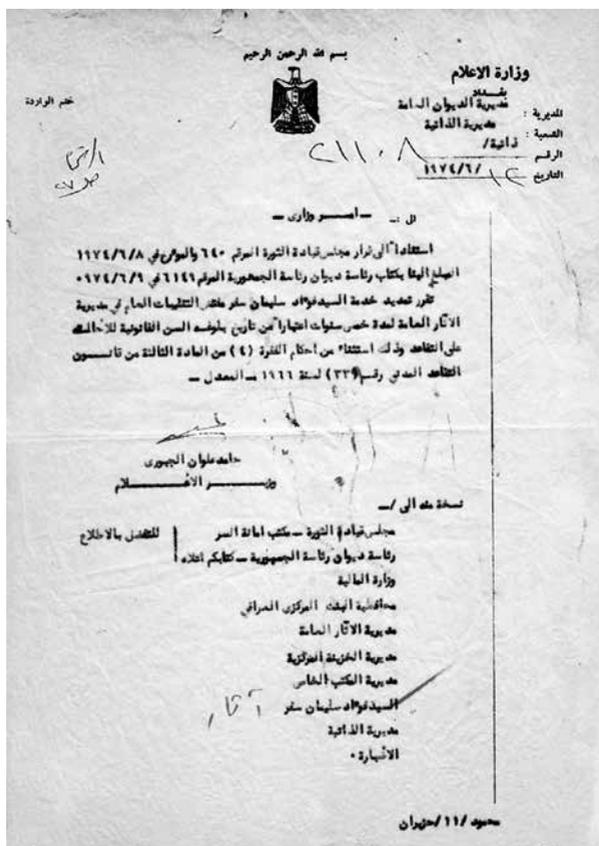 بسم الله الرحمن الرحيم
وزارة الاعلام
بغداد
ختم الواردة
المديرية : مديرية الديوان العامة
الشعبة : مديرية الذاتية
الرقم ذاتية/ ٢١١٠٨
التاريخ ١٢/٦/١٩٧٤
الى :ـ
ـ امـــر وزارى ـ
استنادا الى قرار مجلس قيادة الثورة المرقم ٦٤٠ والمؤرخ في ١٩٧٤/٦/٨
المبلغ الينا بكتاب رئاسة ديوان رئاسة الجمهورية المرقم ٦١٤٩ في ٩٧٤/٦/٩٠
تقرر تمديد خدمة السيد فؤاد سليمان سفر مفتش التنقيبات العام في مديرية
الآثار العامة لمدة خمس سنوات اعتبارا من تاريخ بلوغه السن القانونية للاحالة
على التقاعد وذلك استثناء من أحكام الفقرة (٤) من المادة الثالثة من قانـــون
التقاعد المدني رقم (٣٣) لسنة ١٩٦٦ ـ المعدل ـ
حامد علوان الجبورى
وزيـــر الاعـــلام
نسخة منه الى /ـ
مجلس قيادة الثورة ـ مكتب امانة السر
للتفضل بالاطلاع
رئاسة ديوان رئاسة الجمهورية ـ كتابكم اعلاه
وزارة المالية
محافظية البنك المركزى العراقي
مديرية الآثار العامة
مديرية الخزينة المركزية
مديرية المكتب الخاص
السيد فؤاد سليمان سفر
آثار
مديرية الذاتية
الاضبارة ٠
محمود /١١/حزيران